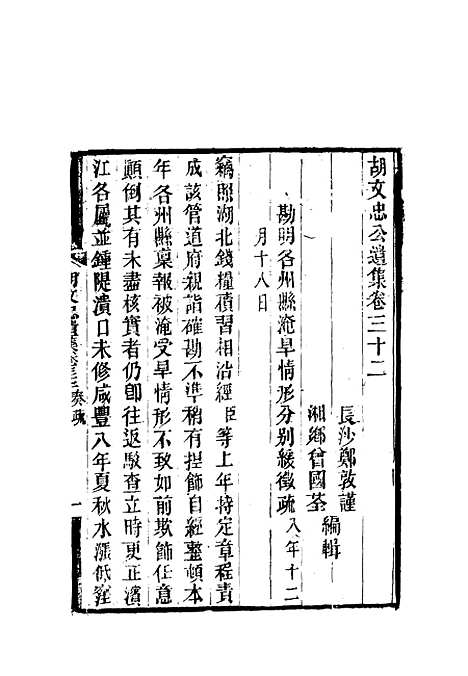 胡文忠公遺集卷三十二
長沙鄭敦謹
湘鄉曾國荃
編輯
勘明各州縣淹旱情形分別緩徵疏 八年十二
月十八日
竊照湖北錢糧積習相沿經臣等上年特定章程責
成該管道府親詣確勘不準稍有捏飾自經整頓本
年各州縣稟報被淹受旱情形不致如前欺飾任意
顛倒其有未盡核實者仍卽往返駁查立時更正濱
江各屬並鍾隄潰口未修咸豐八年夏秋水漲低窪
奏疏
一